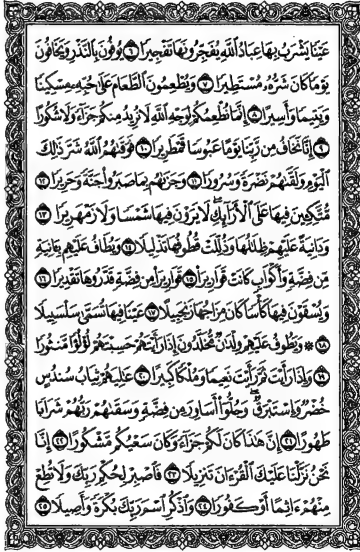 عَيْنًا يَشْرَبُ بِهَا عِبَادُ ٱللَّهِ يُفَجِّرُونَهَا تَفْجِيرًا ٦ يُوفُونَ بِٱلنَّذْرِ وَيَخَافُونَ
يَوْمًا كَانَ شَرُّهُۥ مُسْتَطِيرًا ٧ وَيُطْعِمُونَ ٱلطَّعَامَ عَلَىٰ حُبِّهِۦ مِسْكِينًا
وَيَتِيمًا وَأَسِيرًا ٨ إِنَّمَا نُطْعِمُكُمْ لِوَجْهِ ٱللَّهِ لَا نُرِيدُ مِنكُمْ جَزَآءً وَلَا شُكُورًا
٩ إِنَّا نَخَافُ مِن رَّبِّنَا يَوْمًا عَبُوسًا قَمْطَرِيرًا ١٠ فَوَقَىٰهُمُ ٱللَّهُ شَرَّ ذَٰلِكَ
ٱلْيَوْمِ وَلَقَّىٰهُمْ نَضْرَةً وَسُرُورًا ١١ وَجَزَىٰهُم بِمَا صَبَرُوا۟ جَنَّةً وَحَرِيرًا ١٢
مُّتَّكِـِٔينَ فِيهَا عَلَى ٱلْأَرَآئِكِ ۖ لَا يَرَوْنَ فِيهَا شَمْسًا وَلَا زَمْهَرِيرًا ١٣
وَدَانِيَةً عَلَيْهِمْ ظِلَـٰلُهَا وَذُلِّلَتْ قُطُوفُهَا تَذْلِيلًا ١٤ وَيُطَافُ عَلَيْهِم بِـَٔانِيَةٍ
مِّن فِضَّةٍ وَأَكْوَابٍ كَانَتْ قَوَارِيرَا۠ ١٥ قَوَارِيرَا۟ مِن فِضَّةٍ قَدَّرُوهَا تَقْدِيرًا ١٦
وَيُسْقَوْنَ فِيهَا كَأْسًا كَانَ مِزَاجُهَا زَنجَبِيلًا ١٧ عَيْنًا فِيهَا تُسَمَّىٰ سَلْسَبِيلًا
١٨ ۞ وَيَطُوفُ عَلَيْهِمْ وِلْدَٰنٌ مُّخَلَّدُونَ إِذَا رَأَيْتَهُمْ حَسِبْتَهُمْ لُؤْلُؤًا مَّنثُورًا
١٩ وَإِذَا رَأَيْتَ ثَمَّ رَأَيْتَ نَعِيمًا وَمُلْكًا كَبِيرًا ٢٠ عَـٰلِيَهُمْ ثِيَابُ سُندُسٍ
خُضْرٌ وَإِسْتَبْرَقٌ ۖ وَحُلُّوٓا۟ أَسَاوِرَ مِن فِضَّةٍ وَسَقَىٰهُمْ رَبُّهُمْ شَرَابًا
طَهُورًا ٢١ إِنَّ هَـٰذَا كَانَ لَكُمْ جَزَآءً وَكَانَ سَعْيُكُم مَّشْكُورًا ٢٢ إِنَّا
نَحْنُ نَزَّلْنَا عَلَيْكَ ٱلْقُرْءَانَ تَنزِيلًا ٢٣ فَٱصْبِرْ لِحُكْمِ رَبِّكَ وَلَا تُطِعْ
مِنْهُمْ ءَاثِمًا أَوْ كَفُورًا ٢٤ وَٱذْكُرِ ٱسْمَ رَبِّكَ بُكْرَةً وَأَصِيلًا ٢٥